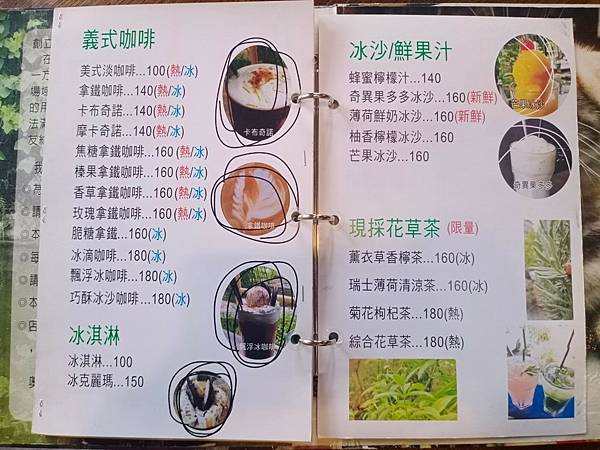 義式咖啡
美式淡咖啡...100(熱/冰)
拿鐵咖啡...140(熱/冰)
卡布奇諾...140(熱/冰)
摩卡奇諾...140(熱/冰)
焦糖拿鐵咖啡...160(熱/冰)
榛果拿鐵咖啡...160(熱/冰)
香草拿鐵咖啡...160(熱/冰)
玫瑰拿鐵咖啡...160(熱/冰)
脆糖拿鐵...160(冰)
冰滴咖啡...180(冰)
飄浮冰咖啡...180(冰)
巧酥冰沙咖啡...180(冰)
卡布奇諾
拿鐵咖啡
飄浮冰咖啡
冰淇淋
冰淇淋...100
冰克麗瑪...150
冰沙/鮮果汁
蜂蜜檸檬汁...140
奇異果多多冰沙...160(新鮮)
薄荷鮮奶冰沙...160(新鮮)
柚香檸檬冰沙...160
芒果冰沙...160
芒果冰沙
奇異果多多
現採花草茶(限量)
薰衣草香檸茶...160(冰)
瑞士薄荷清涼茶...160(冰)
菊花枸杞茶...180(熱)
綜合花草茶...180(熱)